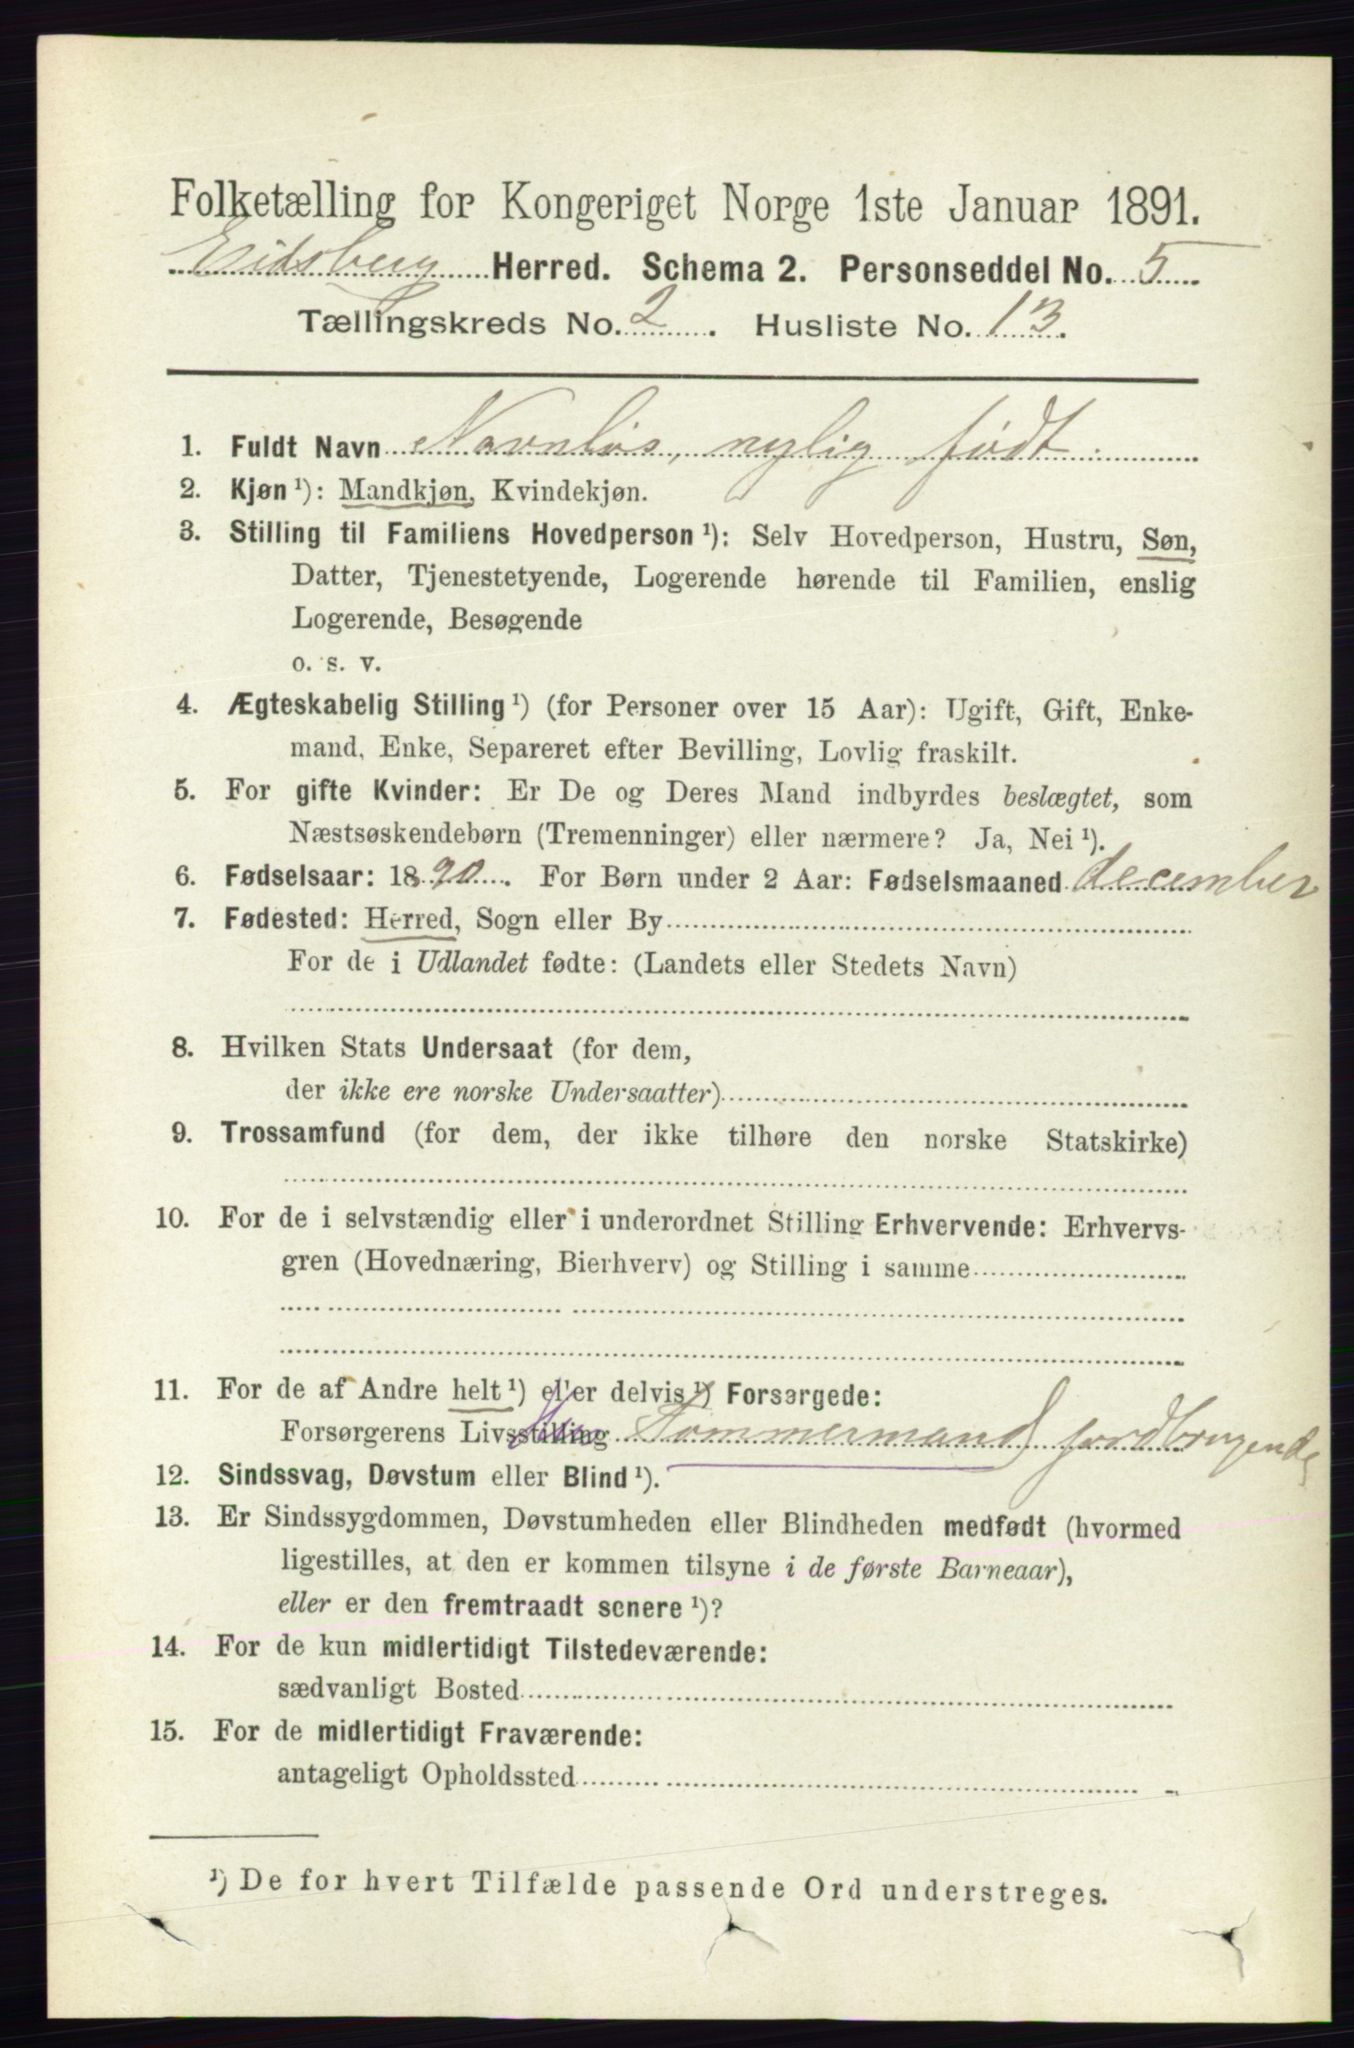 Folketælling for Kongeriget Norge 1ste Januar 1891.
Eidsberg Herred. Schema 2. Personseddel No. 5
Tællingskreds No. 2. Husliste No. 13.
1. Fuldt Navn Navnløs, nylig født.
2. Kjøn ¹): Mandkjøn, Kvindekjøn.
3. Stilling til Familiens Hovedperson ¹): Selv Hovedperson, Hustru, Søn,
Datter, Tjenestetyende, Logerende hørende til Familien, enslig
Logerende, Besøgende
o. s. v.
4. Ægteskabelig Stilling ¹) (for Personer over 15 Aar): Ugift, Gift, Enke-
mand, Enke, Separeret efter Bevilling, Lovlig fraskilt.
5. For gifte Kvinder: Er De og Deres Mand indbyrdes beslægtet, som
Næstsøskendebørn (Tremenninger) eller nærmere? Ja, Nei ¹).
6. Fødselsaar: 1890. For Børn under 2 Aar: Fødselsmaaned december
7. Fødested: Herred, Sogn eller By
For de i Udlandet fødte: (Landets eller Stedets Navn)
8. Hvilken Stats Undersaat (for dem,
der ikke ere norske Undersaatter)
9. Trossamfund (for dem, der ikke tilhøre den norske Statskirke)
10. For de i selvstændig eller i underordnet Stilling Erhvervende: Erhvervs-
gren (Hovednæring, Bierhverv) og Stilling i samme
11. For de af Andre helt ¹) eller delvis ¹) Forsørgede:
Forsørgerens Livsstilling Tømmermand jordbrugende
12. Sindssvag, Døvstum eller Blind ¹).
13. Er Sindssygdommen, Døvstumheden eller Blindheden medfødt (hvormed
ligestilles, at den er kommen tilsyne i de første Barneaar),
eller er den fremtraadt senere ¹)?
14. For de kun midlertidigt Tilstedeværende:
sædvanligt Bosted
15. For de midlertidigt Fraværende:
antageligt Opholdssted
¹) De for hvert Tilfælde passende Ord understreges.